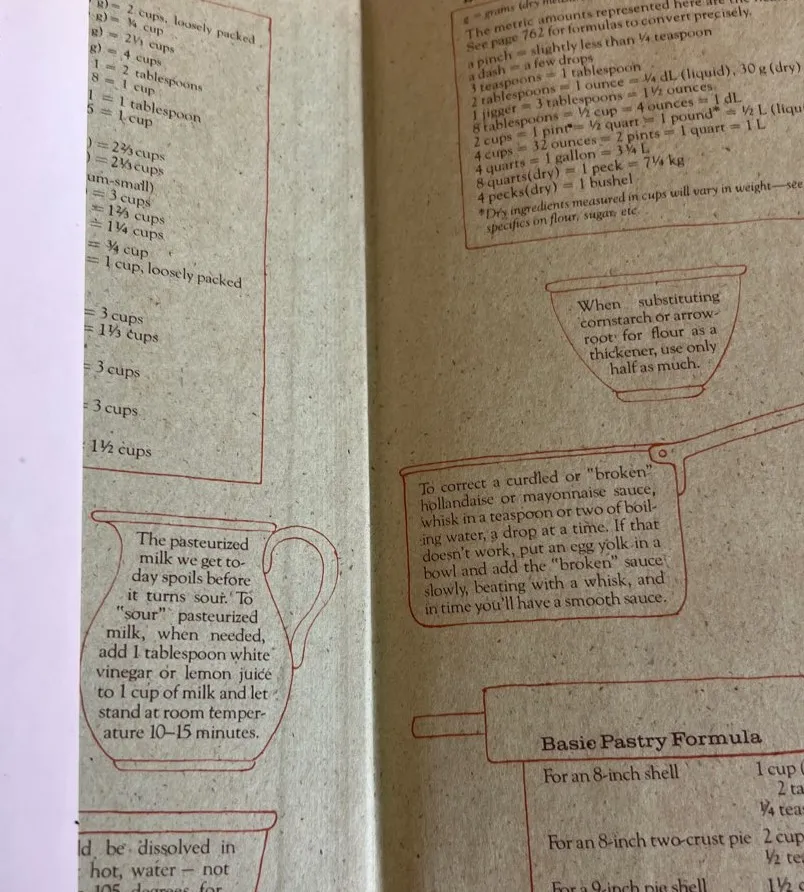 g) = 2 cups, loosely packed
g) = ¾ cup
g) = 2⅓ cups
g) = 4 cups
1 = 2 tablespoons
8 = 1 cup
1 = 1 tablespoon
5 = 1 cup
) = 2⅔ cups
) = 2⅓ cups
um-small)
= 3 cups
= 1⅔ cups
= 1¼ cups
= ¾ cup
= 1 cup, loosely packed
= 3 cups
= 1⅓ cups
= 3 cups
= 3 cups
1½ cups
The pasteurized
milk we get to-
day spoils before
it turns sour. To
"sour" pasteurized
milk, when needed,
add 1 tablespoon white
vinegar or lemon juice
to 1 cup of milk and let
stand at room temper-
ature 10–15 minutes.
ld be dissolved in
hot, water — not
105 degrees for
g = grams (dry
The metric amounts represented here are the
See page 762 for formulas to convert precisely.
a pinch = slightly less than ¼ teaspoon
a dash = a few drops
3 teaspoons = 1 tablespoon
2 tablespoons = 1 ounce = ¼ dL (liquid), 30 g (dry)
1 jigger = 3 tablespoons = 1½ ounces
8 tablespoons = ½ cup = 4 ounces = 1 dL
2 cups = 1 pint = ½ quart = 1 pound* = ½ L (liqu
4 cups = 32 ounces = 2 pints = 1 quart = 1 L
4 quarts = 1 gallon = 3¾ L
8 quarts(dry) = 1 peck = 7¼ kg
4 pecks(dry) = 1 bushel
*Dry ingredients measured in cups will vary in weight—see
specifics on flour, sugar, etc.
When substituting
cornstarch or arrow-
root for flour as a
thickener, use only
half as much.
To correct a curdled or "broken"
hollandaise or mayonnaise sauce,
whisk in a teaspoon or two of boil-
ing water, a drop at a time. If that
doesn't work, put an egg yolk in a
bowl and add the "broken" sauce
slowly, beating with a whisk, and
in time you'll have a smooth sauce.
Basic Pastry Formula
For an 8-inch shell 1 cup (
2 ta
¼ tea
For an 8-inch two-crust pie 2 cup
½ te
For a 9-inch pie shell 1½